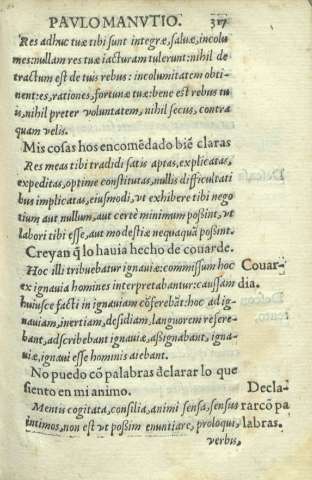 PAVLO MANVTIO. 317
Res adhuc tuæ tibi sunt integræ, saluæ, incolu
mes: nullam res tuæ iacturam tulerunt: nihil de
tractum est de tuis rebus: incolumitatem obti-
nent: es, rationes, fortunæ tuæ: bene est rebus tu
is, nihil preter voluntatem, nihil secus, contra
quam velis.
Mis cosas hos encomẽdado biẽ claras
Res meas tibi tradidi satis aptas, explicatas,
expeditas, optime constitutas, nullis difficultati
bus implicatas, eiusmodi, vt exhibere tibi nego
tium aut nullum, aut certè minimum poßint, vt
labori tibi esse, aut modestiæ nequaquã poßint.
Creyan q̃ lo hauia hecho de couarde.
Hoc illi tribuebatur ignauiæ: commissum hoc
ex ignauia homines interpretabantur: caussam
huiusce facti in ignauiam cõferebãt: hoc ad ig-
nauiam, inertiam, desidiam, languorem refere-
bant, adscribebant ignauiæ, aßignabant, igna-
uiæ, ignaui esse hominis aiebant.
Couar-
dia.
No puedo cõ palabras declarar lo que
siento en mi animo.
Mentis cogitata, consilia, animi sensa, sensus
intimos, non est vt poßim enuntiare, proloqui,
verbis,
Decla-
rarcõ pa
labras.